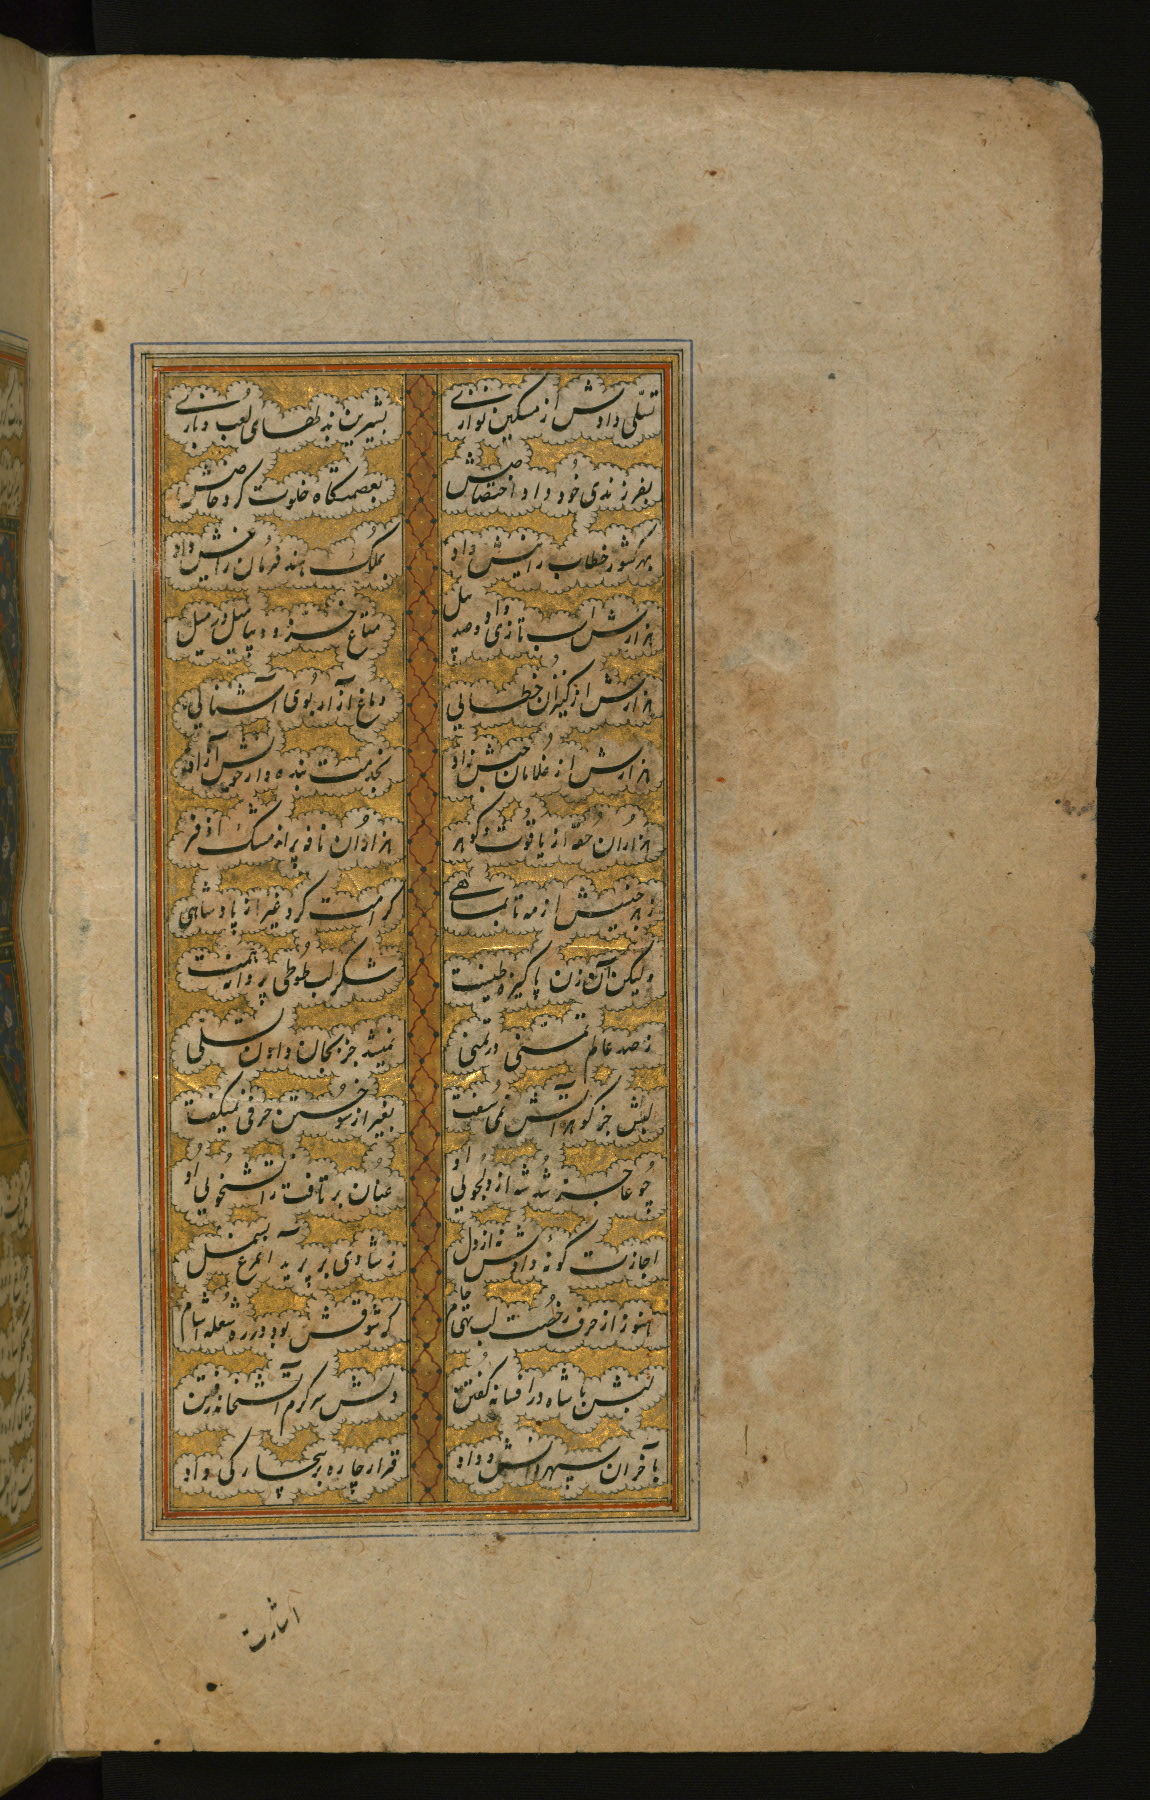 تسلی دادش از مسکین نوازی
بشیرین نه لطفهای لعب و بازی
بفرزندی خود داد اختصاصش
بعصمتگاه خلوت کرد خاصش
بهر کشور خطاب رانیش داد
بملک هند فرمان رانیش داد
هزارش اسب تازی داد و صد پیل
متاع خز و دیبا میل در میل
هزارش از کنیزان خطایی
دماغ آزاد بوی آشنایی
هزارش از غلامان حبش زاد
بخدمت بنده وار خویش آزاد
هزاران حقه از یاقوت و گوهر
هزاران نافه پر از مشک اذفر
زهر جنسیش از مه تا بماهی
کرامت کرد غیر از پادشاهی
ولیکن آن زن پاکیزه طینت
شکر لب طوطی پروانه همت
ز صد عالم تمنی در تمنی
نمیشد جز بجان دادن تسلی
لبش جز گوهر آتش نمی سفت
بغیر از سوختن حرفی نمیگفت
چو عاجز شد شه از دلجویی او
عنان برتافت ز آتشخویی او
اجازت گونه دادش نه از دل
ز شادی بر پرید آن مرغ بسمل
هنوز از حرف رخصت لب تهی جام
که شوقش بود در ره شعله آشام
لبش با شاه در افسانه گفتن
دلش سرگرم آتشخانه رفتن
بآخر آن سپهر دانش و داد
قرار چاره بر بیچارگی داد
اشارت